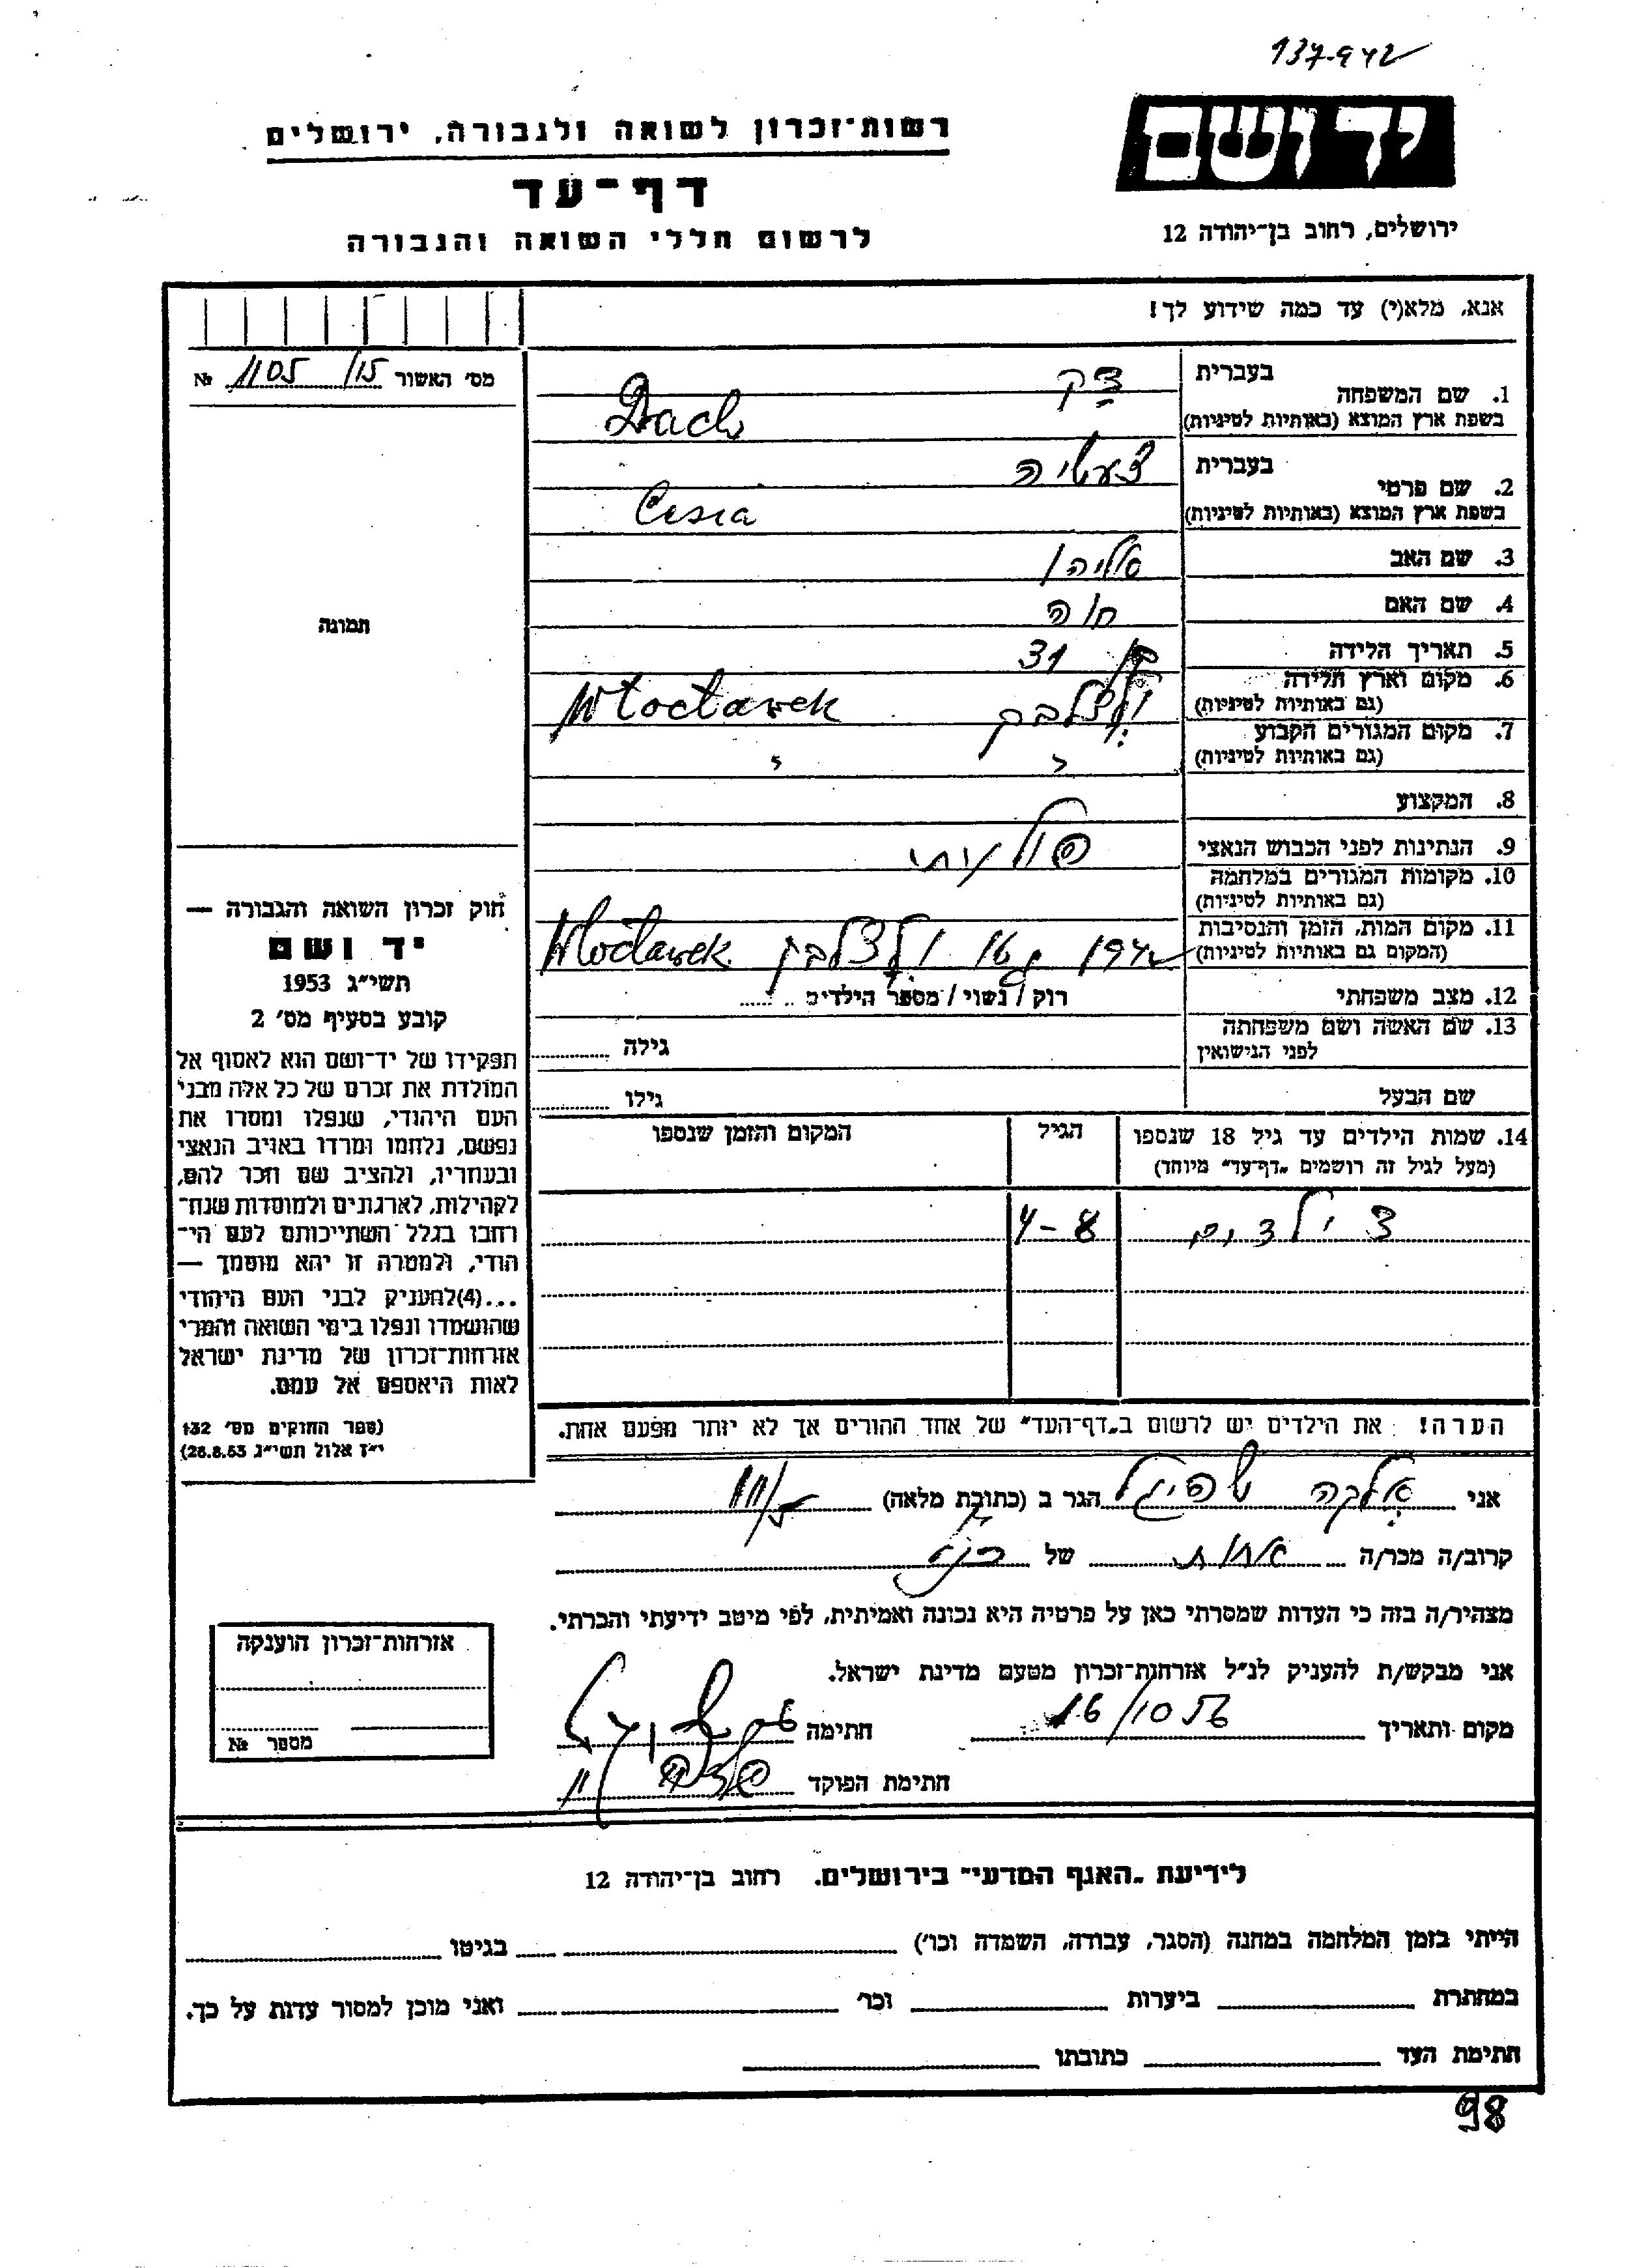 137-942
יד ושם
רשות־זכרון לשואה ולגבורה, ירושלים
דף־עד
לרשום חללי השואה והגבורה
ירושלים, רחוב בן־יהודה 12
אנא, מלא(י) עד כמה שידוע לך!
מס׳ האשור 15/ 1105 №
תמונה
1. שם המשפחה
בעברית דק
בשפת ארץ המוצא (באותיות לטיניות) Dach
2. שם פרטי
בעברית צעשיה
בשפת ארץ המוצא (באותיות לטיניות) Cesia
3. שם האב אליהו
4. שם האם חוה
5. תאריך הלידה 31
6. מקום וארץ הלידה
(גם באותיות לטיניות) ולצלבק Wloctawek
7. מקום המגורים הקבוע
(גם באותיות לטיניות) " "
8. המקצוע
9. הנתינות לפני הכבוש הנאצי פולנית
10. מקומות המגורים במלחמה
(גם באותיות לטיניות)
11. מקום המות, הזמן והנסיבות
(המקום גם באותיות לטיניות) 1942 ולצלבק Wloctawek
12. מצב משפחתי רוק / נשוי / מספר הילדים
13. שם האשה ושם משפחתה
לפני הנישואין גילה
שם הבעל גילו
14. שמות הילדים עד גיל 18 שנספו
(מעל לגיל זה רושמים „דף־עד״ מיוחד)
הגיל
המקום והזמן שנספו
2 ילדים 4-8
הערה! את הילדים יש לרשום ב„דף־העד״ של אחד ההורים אך לא יותר מפעם אחת.
חוק זכרון השואה והגבורה —
יד ושם
תשי״ג 1953
קובע בסעיף מס׳ 2
תפקידו של יד־ושם הוא לאסוף אל
המולדת את זכרם של כל אלה מבני
העם היהודי, שנפלו ומסרו את
נפשם, נלחמו ומרדו באויב הנאצי
ובעוזריו, ולהציב שם וזכר להם,
לקהילות, לארגונים ולמוסדות שנח־
רבו בגלל השתייכותם לעם הי־
הודי, ולמטרה זו יהא מוסמך —
...(4)להעניק לבני העם היהודי
שהושמדו ונפלו בימי השואה והמרי
אזרחות־זכרון של מדינת ישראל
לאות היאספם אל עמם.
(ספר החוקים מס׳ 132
י״ז אלול תשי״ג 28.8.53)
אני אלקה שפיגל הגר ב (כתובת מלאה)
קרוב/ה מכר/ה אחות של
מצהיר/ה בזה כי העדות שמסרתי כאן על פרטיה היא נכונה ואמיתית, לפי מיטב ידיעתי והכרתי.
אני מבקש/ת להעניק לנ״ל אזרחות־זכרון מטעם מדינת ישראל.
מקום ותאריך 16/10 56 חתימה
חתימת הפוקד
אזרחות־זכרון הוענקה
מספר №
לידיעת „האגף המדעי״ בירושלים. רחוב בן־יהודה 12
הייתי בזמן המלחמה במחנה (הסגר, עבודה, השמדה וכו׳) בגיטו
במחתרת ביערות וכו׳ ואני מוכן למסור עדות על כך.
חתימת העד כתובתו
98